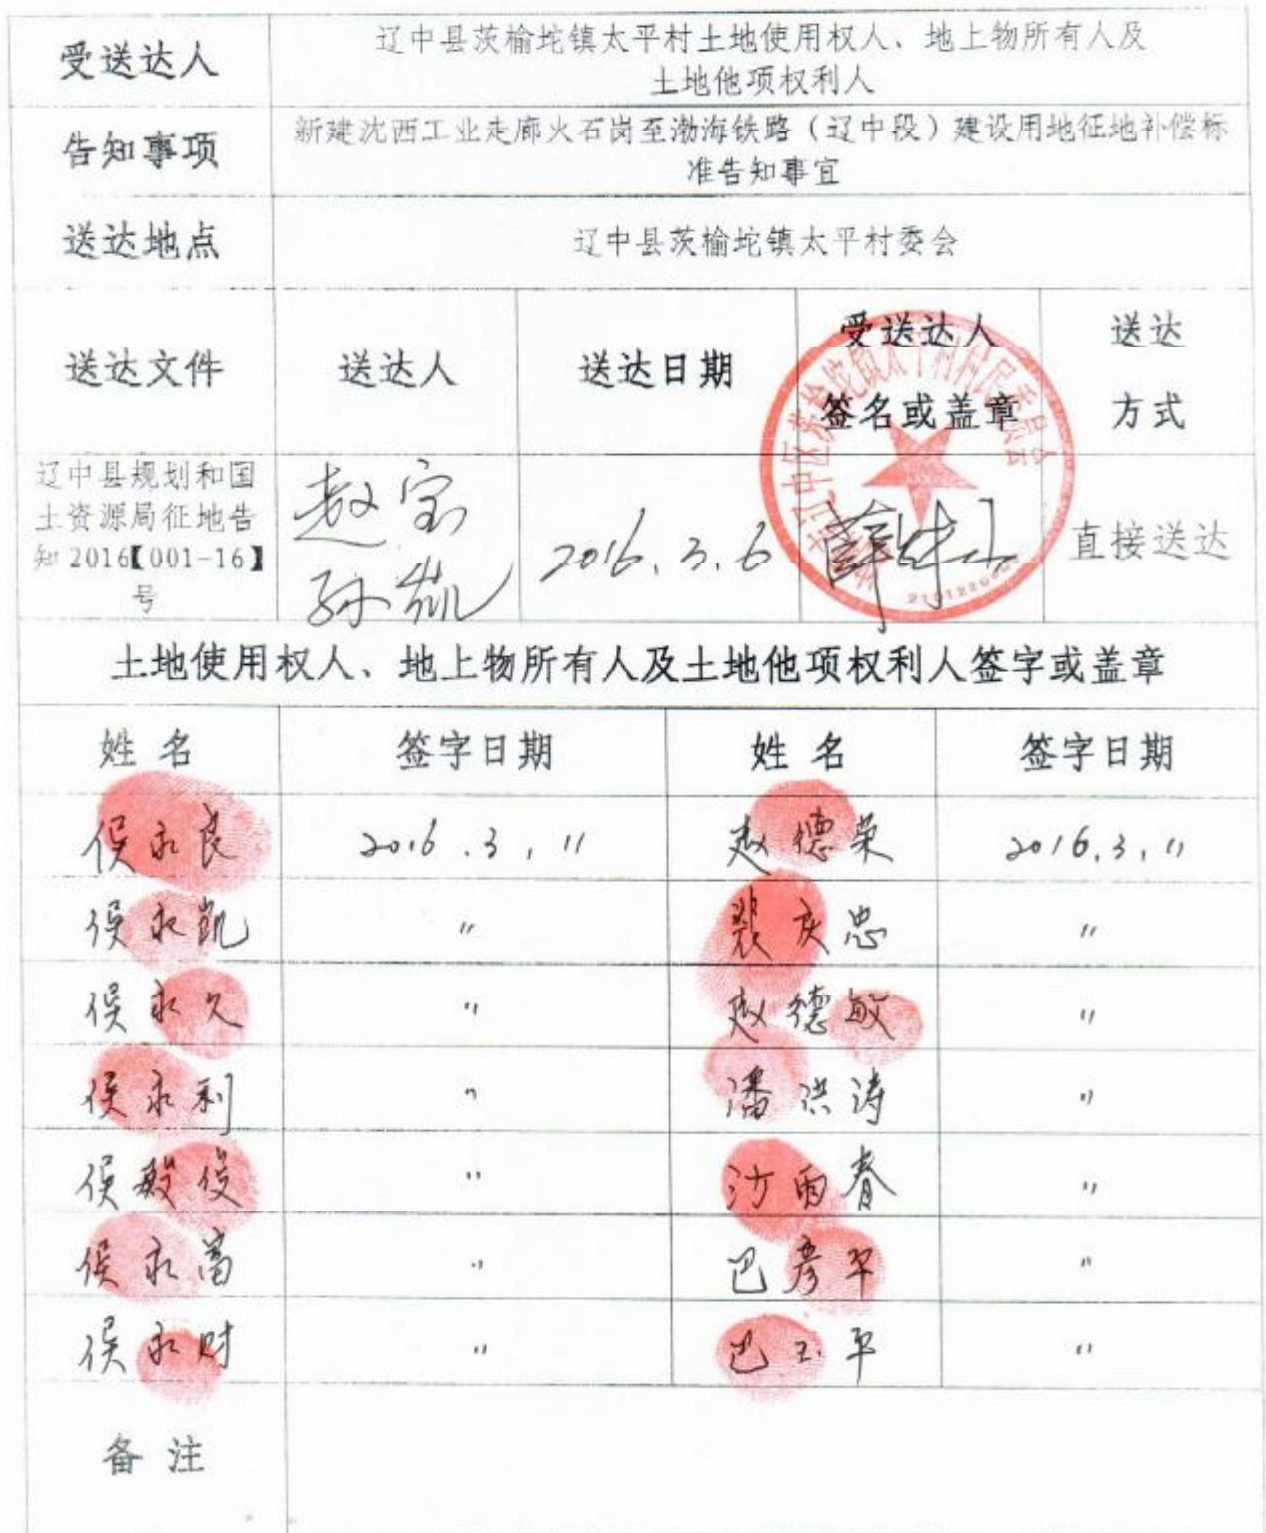 受送达人
辽中县茨榆坨镇太平村土地使用权人、地上物所有人及
土地他项权利人
告知事项
新建沈西工业走廊火石岗至渤海铁路（辽中段）建设用地征地补偿标
准告知事宜
送达地点
辽中县茨榆坨镇太平村委会
送达文件
送达人
送达日期
受送达人
签名或盖章
送达
方式
辽中县规划和国
土资源局征地告
知2016【001-16】
号
赵宝
孙凯
2016.3.6
薛
直接送达
土地使用权人、地上物所有人及土地他项权利人签字或盖章
姓 名
签字日期
姓 名
签字日期
侯永良
2016.3.11
赵德荣
2016.3.11
侯永凯
〃
裴庆忠
〃
侯永久
〃
赵德敏
〃
侯永利
〃
潘洪涛
〃
侯殿俊
〃
汐雨春
〃
侯永富
〃
巴彦平
〃
侯永财
〃
巴玉平
〃
备 注